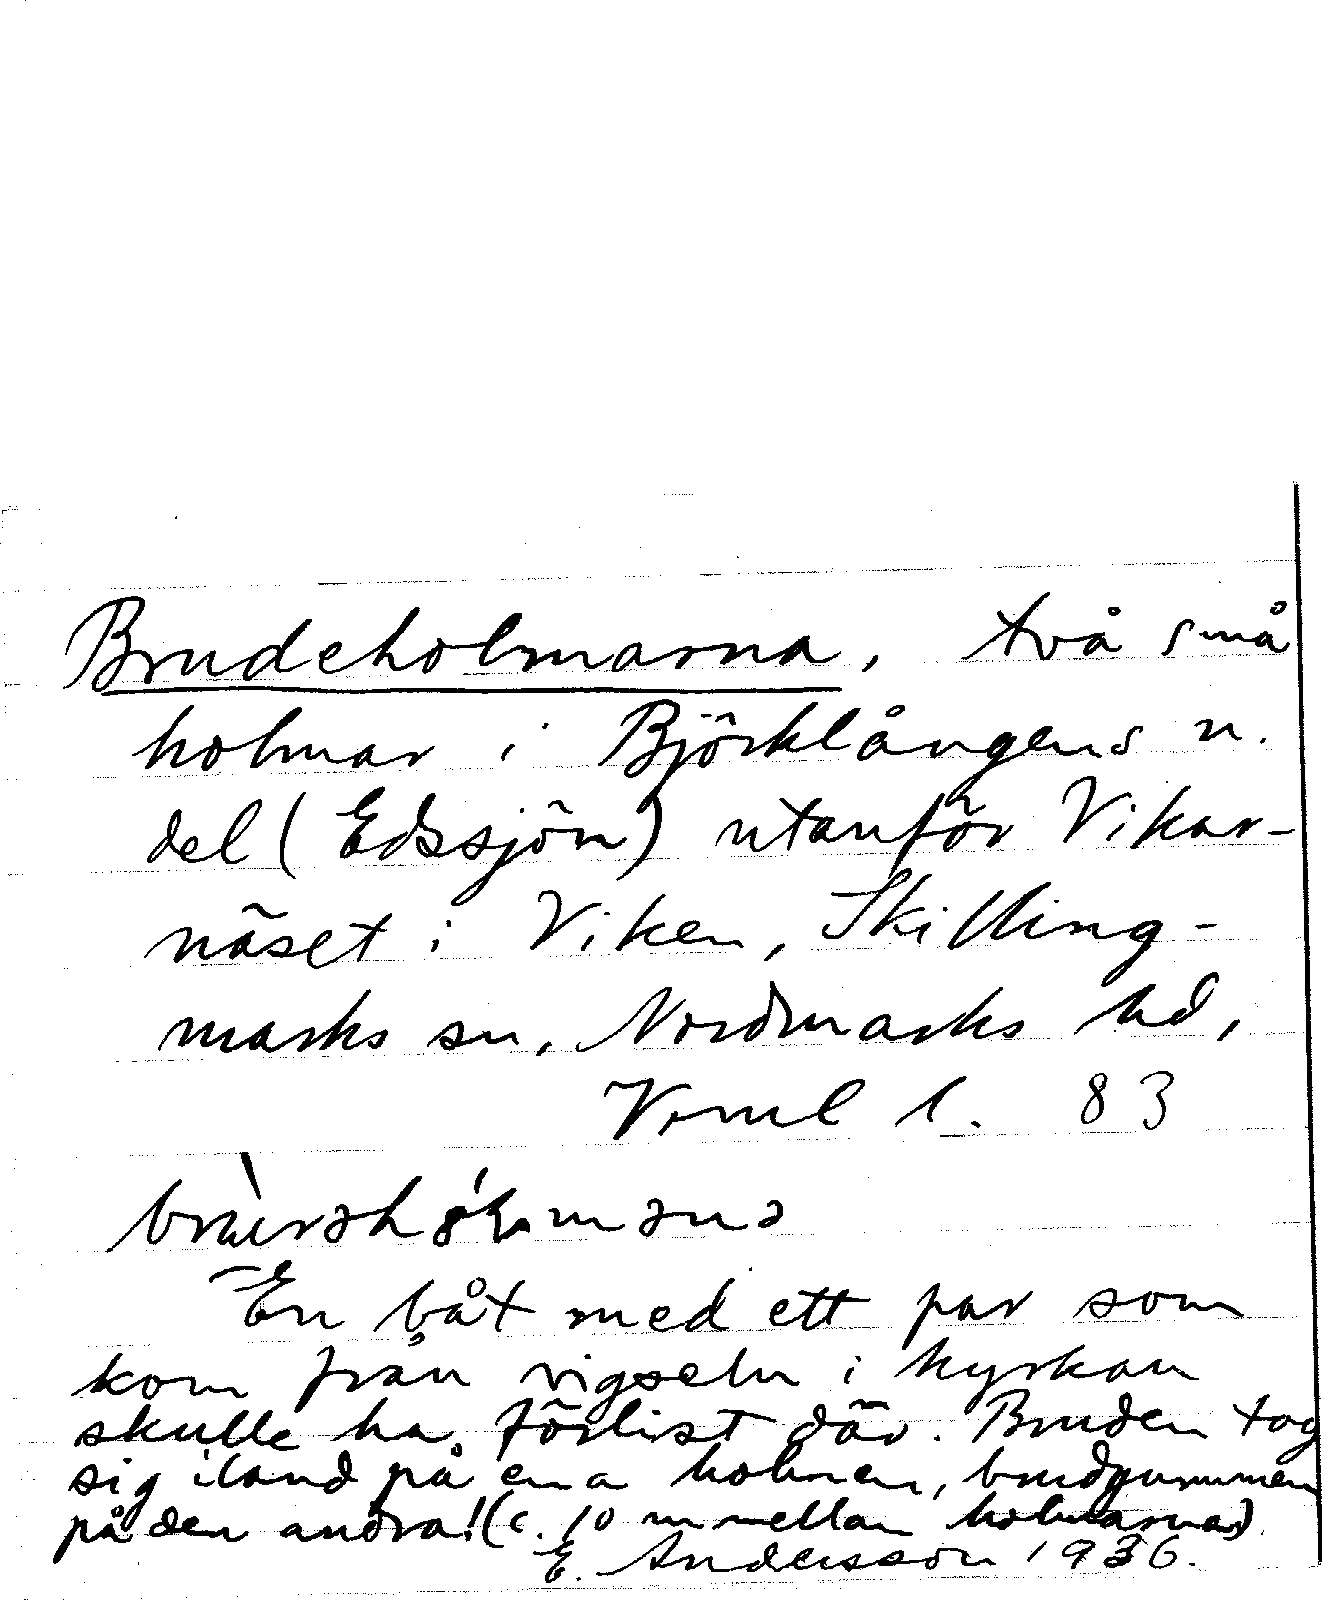 Brudeholmarna, två små
holmar i Björklångens n.
del (Edssjön) utanför Vikar-
näset i Viken, Skilling-
marks sn, Nordmarks hd,
Verml l. 83
En båt med ett par som
kom från vigseln i kyrkan
skulle ha förlist där. Bruden tog
sig iland på ena holmen, brudgummen
på den andra! (c. 10 m mellan holmarna)
E. Andersson 1936.